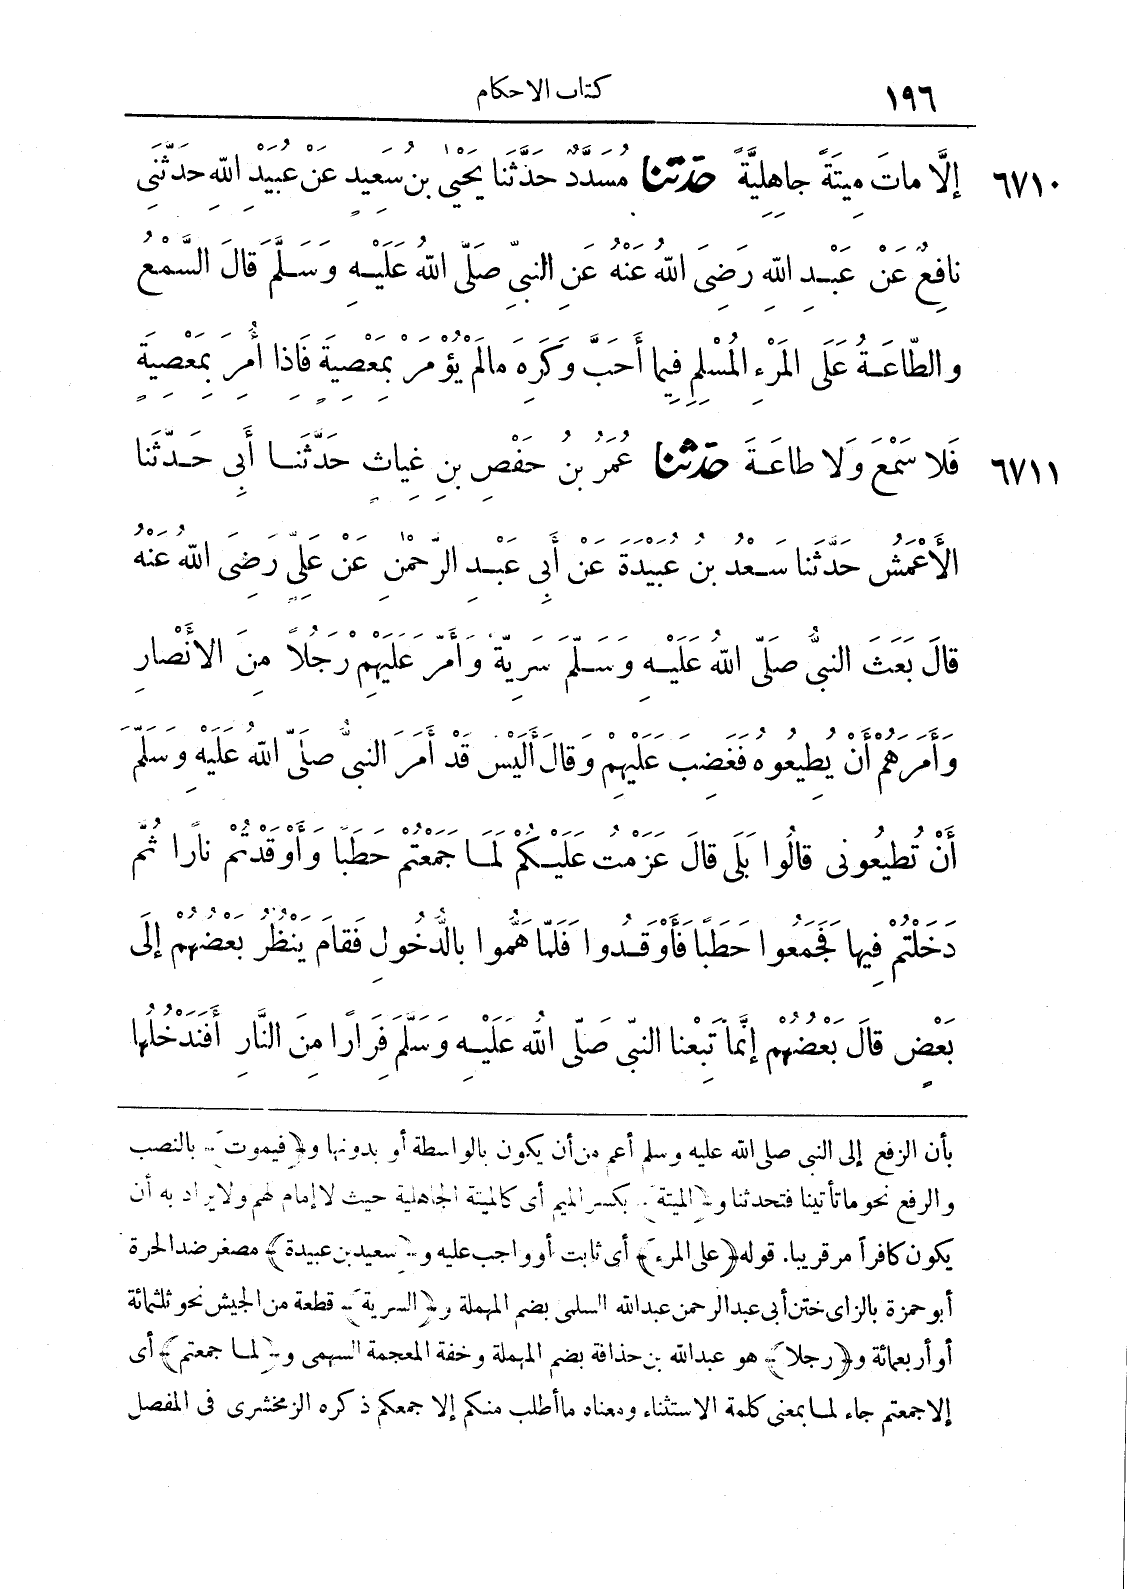 ١٩٦
كتاب الاحكام
إلَّا ماتَ مِيتَةً جاهِلِيَّةً حَدَّثَنَا مُسَدَّدٌ حَدَّثَنا يَحْيٰ بنُ سَعِيدٍ عَنْ عُبَيْدِ اللهِ حَدَّثَنِى ٦٧١٠
نافِعٌ عَنْ عَبْدِ اللهِ رَضِىَ اللهُ عَنْهُ عَنِ النبىِّ صَلَّى اللهُ عَلَيْهِ وَسَلَّمَ قالَ السَّمْعُ
والطَّاعَةُ عَلَى المَرْءِ المُسْلِمِ فِيما أَحَبَّ وَكَرِهَ مالَمْ يُؤْمَرْ بِمَعْصِيَةٍ فَاذا أُمِرَ بِمَعْصِيَةٍ
فَلا سَمْعَ وَلا طاعَةَ حَدَّثَنَا عُمَرُ بنُ حَفْصِ بنِ غِياثٍ حَدَّثَنا أَبِى حَدَّثَنا ٦٧١١
الأَعْمَشُ حَدَّثَنا سَعْدُ بنُ عُبَيْدَةَ عَنْ أَبِى عَبْدِ الرَّحْمٰنِ عَنْ عَلِيٍّ رَضِىَ اللهُ عَنْهُ
قالَ بَعَثَ النبىُّ صَلَّى اللهُ عَلَيْهِ وَسَلَّمَ سَرِيَّةً وَأَمَّرَ عَلَيْهِمْ رَجُلاً مِنَ الأَنْصارِ
وَأَمَرَهُمْ أَنْ يُطِيعُوهُ فَغَضِبَ عَلَيْهِمْ وَقالَ أَلَيْسَ قَدْ أَمَرَ النبىُّ صَلَّى اللهُ عَلَيْهِ وَسَلَّمَ
أَنْ تُطِيعُونى قالُوا بَلَى قالَ عَزَمْتُ عَلَيْكُمْ لَمَا جَمَعْتُمْ حَطَبًا وَأَوْقَدْتُمْ نارًا ثُمَّ
دَخَلْتُمْ فِيها فَجَمَعُوا حَطَبًا فَأَوْقَدُوا فَلَمَّا هَمُّوا بالدُّخُولِ فَقامَ يَنْظُرُ بَعْضُهُمْ إلَى
بَعْضٍ قالَ بَعْضُهُمْ إنَّما تَبِعْنا النبىَّ صَلَّى اللهُ عَلَيْهِ وَسَلَّمَ فِرَارًا مِنَ النَّارِ أَفَنَدْخُلُها
بأن الرفع إلى النبى صلى الله عليه وسلم أعم من أن يكون بالواسطة أو بدونها و﴿فيموت﴾ بالنصب
والرفع نحو ما تأتينا فتحدثنا و﴿الميتة﴾ بكسر الميم أى كالميتة الجاهلية حيث لا إمام لهم ولا يراد به أن
يكون كافرا مر قريبا. قوله ﴿على المرء﴾ أى ثابت أو واجب عليه و﴿سعيد بن عبيدة﴾ مصغر ضد الحرة
أبو حمزة بالزاى ختن أبى عبد الرحمن عبد الله السلمى بضم المهملة و﴿السرية﴾ قطعة من الجيش نحو ثلثمائة
أو أربعمائة و﴿رجلا﴾ هو عبد الله بن حذافة بضم المهملة وخفة المعجمة السهمى و﴿لما جمعتم﴾ أى
إلا جمعتم جاء لما بمعنى كلمة الاستثناء ومعناه ما أطلب منكم إلا جمعكم ذكره الزمخشرى فى المفصل